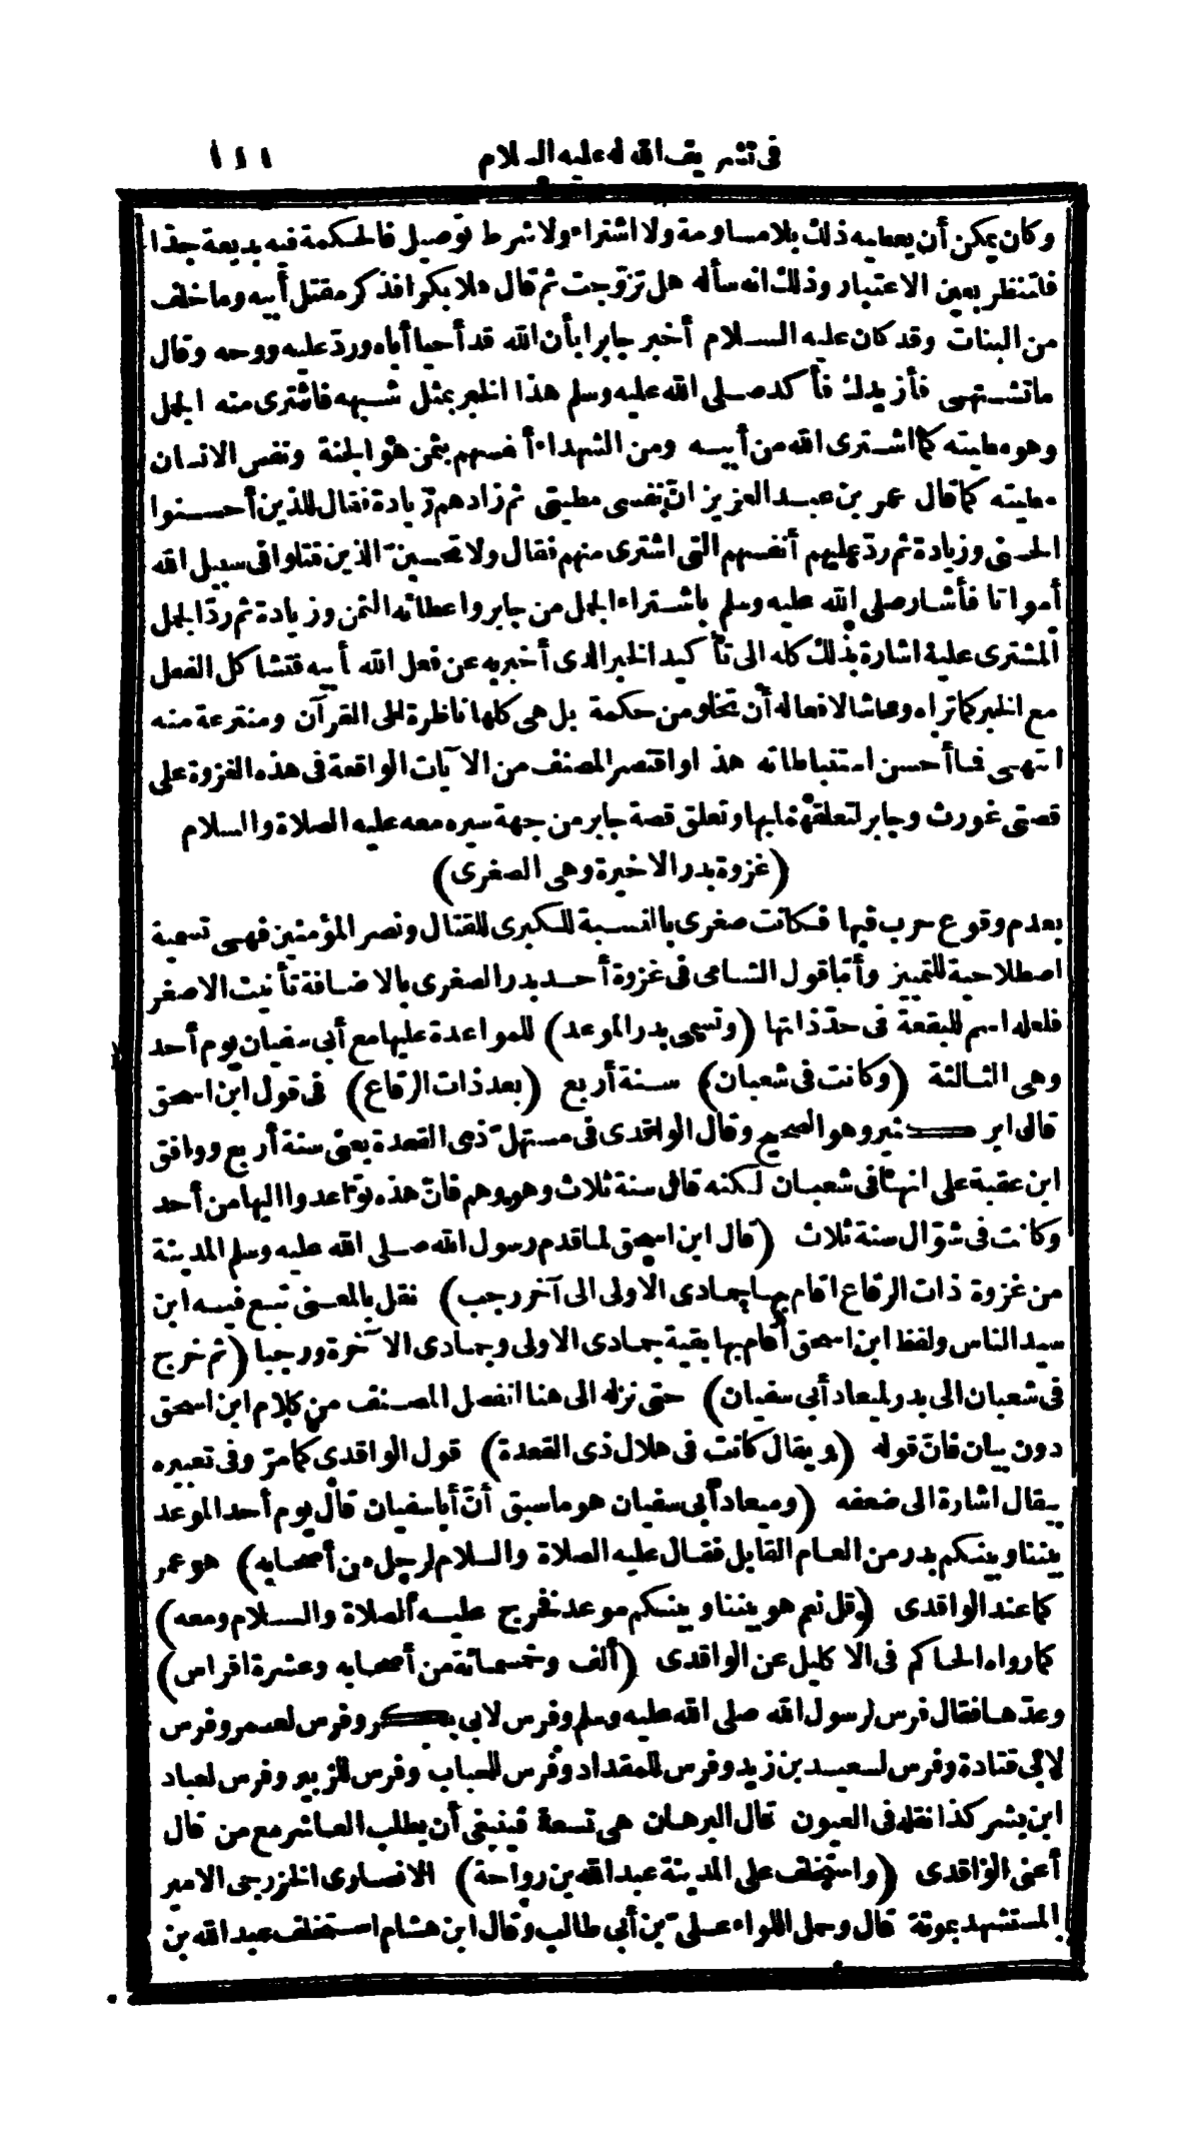 فى تشريف الله له عليه السلام ١١١
وكان يمكن أن يعطيه ذلك بلا مساومة ولا اشتراء ولا شرط توصيل فالحكمة فيه بديعة جدّا
فلتنظر بعين الاعتبار وذلك انه سأله هل تزوّجت ثم قال هلا بكرا فذكر مقتل أبيه وما خلف
من البنات وقد كان عليه السلام أخبر جابرا بأن الله قد أحيا أباه وردّ عليه روحه وقال
ما تشتهى فأزيدك فأكد صلى الله عليه وسلم هذا الخبر بمثل شبهه فاشترى منه الجمل
وهو مطيته كما اشترى الله من أبيه ومن الشهداء أنفسهم بثمن هو الجنة ونفس الانسان
مطيته كما قال عمر بن عبد العزيز انّ نفسى مطيتى ثم زادهم زيادة فقال للذين أحسنوا
الحسنى وزيادة ثم ردّ عليهم أنفسهم التى اشترى منهم فقال ولا تحسبنّ الذين قتلوا فى سبيل الله
أمواتا فأشار صلى الله عليه وسلم باشتراء الجمل من جابر واعطائه الثمن وزيادة ثم ردّ الجمل
المشترى عليه اشارة بذلك كله الى تأكيد الخبر الذى أخبر به عن فعل الله أبيه فتشاكل الفعل
مع الخبر كما تراه وحاشا لافعاله أن تخلو من حكمة بل هى كلها ناظرة الى القرآن ومنتزعة منه
انتهى فما أحسن استنباطاته هذا واقتصر المصنف من الآيات الواقعة فى هذه الغزوة على
قصتى غورث وجابر لتعلقهما بها وتعلق قصة جابر من جهة سيره معه عليه الصلاة والسلام
(غزوة بدر الاخيرة وهى الصغرى)
بعدم وقوع حرب فيها فكانت صغرى بالنسبة للكبرى للقتال ونصر المؤمنين فهى تسمية
اصطلاحية للتمييز وأمّا قول الشامى فى غزوة أحد بدر الصغرى بالاضافة تأنيث الاصغر
فلعله اسم للبقعة فى حدّ ذاتها (وتسمى بدر الموعد) للمواعدة عليها مع أبى سفيان يوم أحد
وهى الثالثة (وكانت فى شعبان) سنة أربع (بعد ذات الرقاع) فى قول ابن اسحق
قال ابن كثير وهو الصحيح وقال الواقدى فى مستهلّ ذى القعدة يعنى سنة أربع ووافق
ابن عقبة على انها فى شعبان لكنه قال سنة ثلاث وهو وهم فانّ هذه تواعدوا اليها من أحد
وكانت فى شوّال سنة ثلاث (قال ابن اسحق لما قدم رسول الله صلى الله عليه وسلم المدينة
من غزوة ذات الرقاع اقام بها جمادى الاولى الى آخر رجب) نقل بالمعنى تبع فيه ابن
سيد الناس ولفظ ابن اسحق أقام بها بقية جمادى الاولى وجمادى الآخرة ورجبا (ثم خرج
فى شعبان الى بدر لميعاد أبى سفيان) حتى نزله الى هنا انفصل المصنف من كلام ابن اسحق
دون بيان فانّ قوله (ويقال كانت فى هلال ذى القعدة) قول الواقدى كما مرّ وفى تعبيره
بيقال اشارة الى ضعفه (وميعاد أبى سفيان هو ما سبق أنّ أبا سفيان قال يوم أحد الموعد
بيننا وبينكم بدر من العام القابل فقال عليه الصلاة والسلام لرجل من أصحابه) هو عمر
كما عند الواقدى (قل نعم هو بيننا وبينكم موعد فخرج عليه الصلاة والسلام ومعه)
كما رواه الحاكم فى الاكليل عن الواقدى (ألف وخمسمائة من أصحابه وعشرة افراس)
وعدّها فقال فرس لرسول الله صلى الله عليه وسلم وفرس لابى بكر وفرس لعمر وفرس
لابى قتادة وفرس لسعيد بن زيد وفرس للمقداد وفرس للحباب وفرس للزبير وفرس لعباد
ابن بشر كذا نقله فى العيون قال البرهان هى تسعة فينبغى أن يطلب العاشر مع من قال
أعنى الواقدى (واستخلف على المدينة عبد الله بن رواحة) الانصارى الخزرجى الامير
المستشهد بموتة قال وحمل اللواء علىّ بن أبى طالب وقال ابن هشام استخلف عبد الله بن